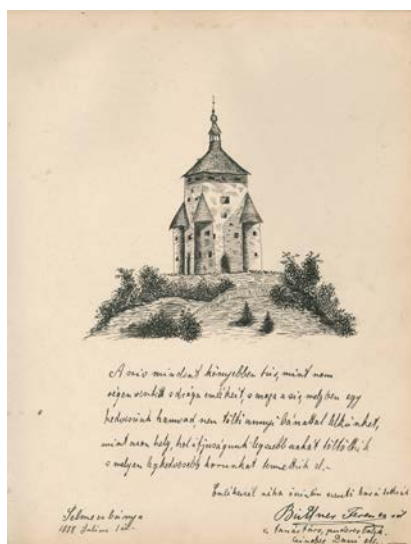 A sziv mindent könnyebben tür, mint nem
régen vesztett drága emlékeit, s maga a sir, melyben egy
kedvesünk hamvad, nem tölti annyi bánattal lelkünket,
mint azon hely, hol ifjuságunk legszebb napjait töltöttük
s melyen legkedvesebb korunkat temettük el.–
Emlékezzél néha őszintén szerető barátodra
Selmeczbánya
1888 Julius
Büttner Ferencz